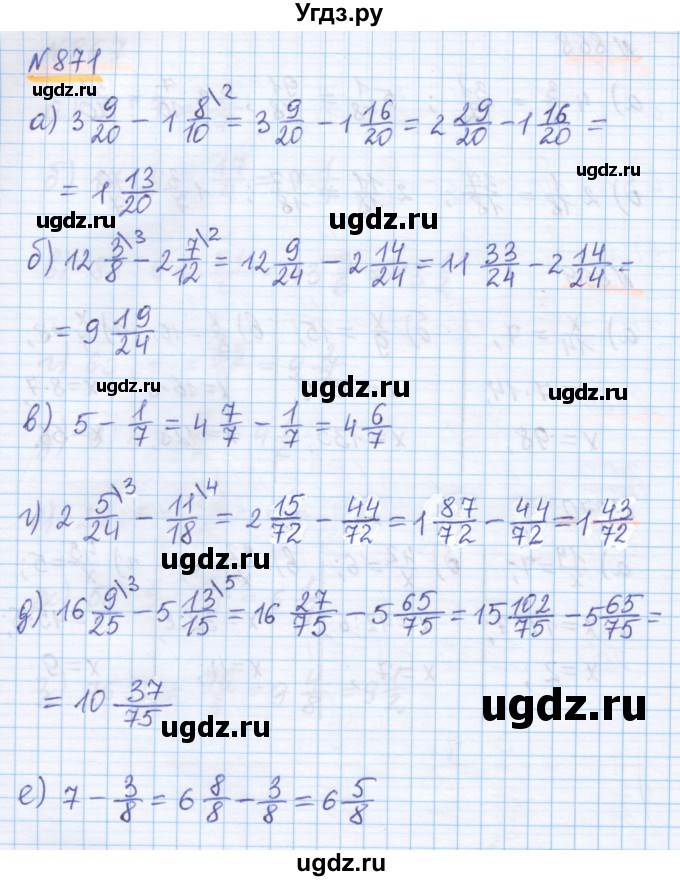 Угдз.ру
№871
ugdz.ru
а) 3 9/20 − 1 8/10\2 = 3 9/20 − 1 16/20 = 2 29/20 − 1 16/20 =
ugdz.ru
= 1 13/20
ugdz.ru ugdz.ru
б) 12 3/8\3 − 2 7/12\2 = 12 9/24 − 2 14/24 = 11 33/24 − 2 14/24 =
ugdz.ru
= 9 19/24
ugdz.ru ugdz.ru
в) 5 − 1/7 = 4 7/7 − 1/7 = 4 6/7
г) 2 5/24\3 − 11/18\4 = 2 15/72 − 44/72 = 1 87/72 − 44/72 = 1 43/72
ugdz.ru
д) 16 9/25\3 − 5 13/15\5 = 16 27/75 − 5 65/75 = 15 102/75 − 5 65/75 =
= 10 37/75
ugdz.ru
ugdz.ru
е) 7 − 3/8 = 6 8/8 − 3/8 = 6 5/8
ugdz.ru